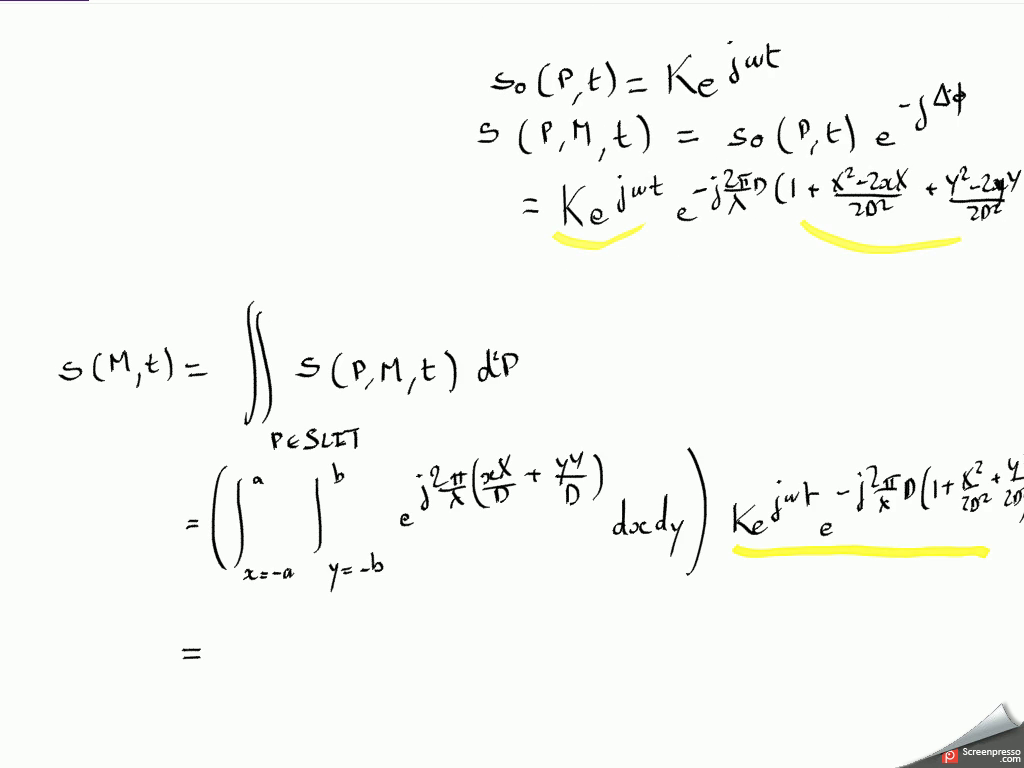 s₀(P,t) = K e^{jωt}
s(P,M,t) = s₀(P,t) e^{-jΔφ}
= K e^{jωt} e^{-j\frac{2π}{λ}D(1 + \frac{X²-2xX}{2D²} + \frac{Y²-2yY}{2D²}}
s(M,t) = ∬_{P∈SLIT} s(P,M,t) d²P
= (∫_{x=-a}^{a} ∫_{y=-b}^{b} e^{j\frac{2π}{λ}(\frac{xX}{D} + \frac{yY}{D})} dxdy) K e^{jωt} e^{-j\frac{2π}{λ}D(1+\frac{X²}{2D²}+\frac{Y²}{2D²}}
=
Screenpresso
.com